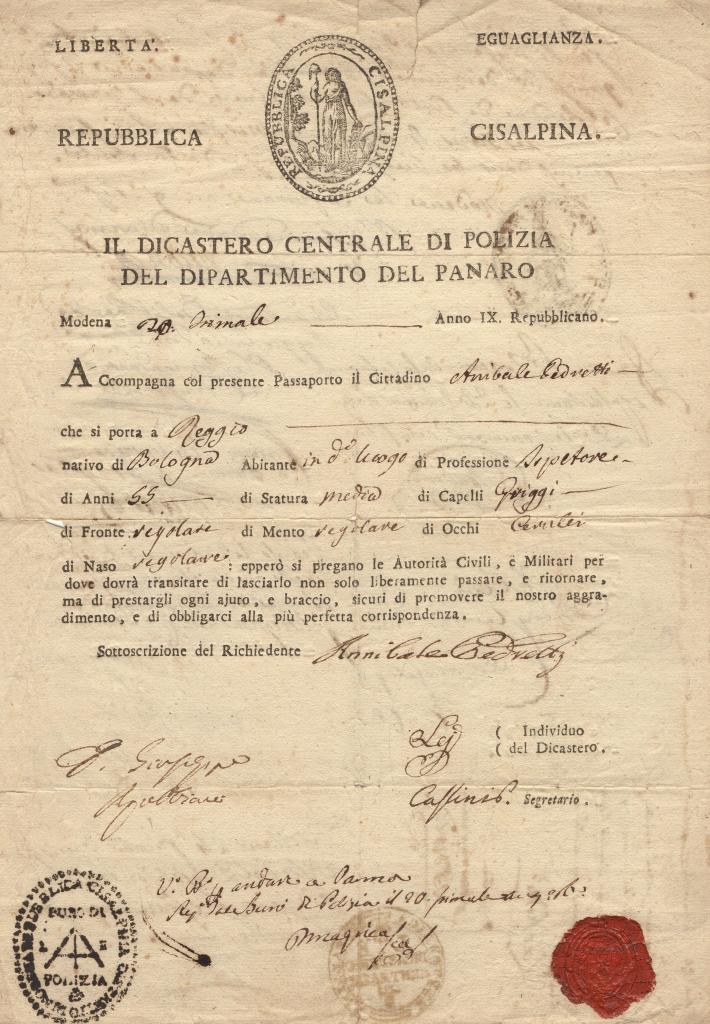 LIBERTA'. EGUAGLIANZA.
REPUBBLICA CISALPINA
REPUBBLICA CISALPINA.
IL DICASTERO CENTRALE DI POLIZIA
DEL DIPARTIMENTO DEL PANARO
Modena 20. Primale Anno IX. Repubblicano.
ACcompagna col presente Passaporto il Cittadino Anibale Pedretti
che si porta a Reggio
nativo di Bologna Abitante in do. luogo di Professione
di Anni 55 di Statura media di Capelli Griggi
di Fronte regolare di Mento regolare di Occhi Cerulei
di Naso regolare: epperò si pregano le Autorità Civili, e Militari per
dove dovrà transitare di lasciarlo non solo liberamente passare, e ritornare,
ma di prestargli ogni ajuto, e braccio, sicuri di promovere il nostro aggra-
dimento, e di obbligarci alla più perfetta corrispondenza.
Sottoscrizione del Richiedente Annibale Pedretti
( Individuo
( del Dicastero.
Giuseppe
Segretario.
andare a Parma
Polizia il 20.
BURO DI
POLIZIA